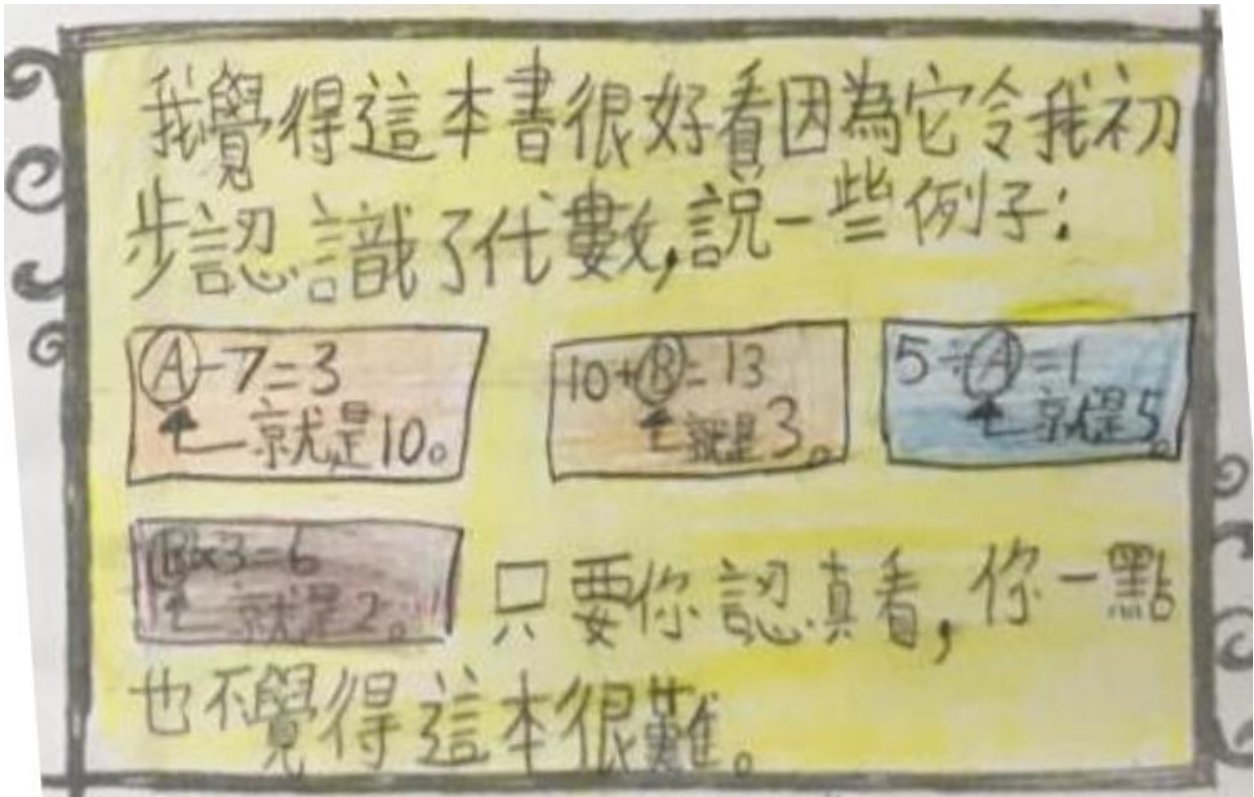 我覺得這本書很好看因為它令我初
步認識了代數,說一些例子:
A-7=3
就是10。
10+B=13
就是3。
5÷A=1
就是5。
B×3=6
就是2。
只要你認真看,你一點
也不覺得這本很難。